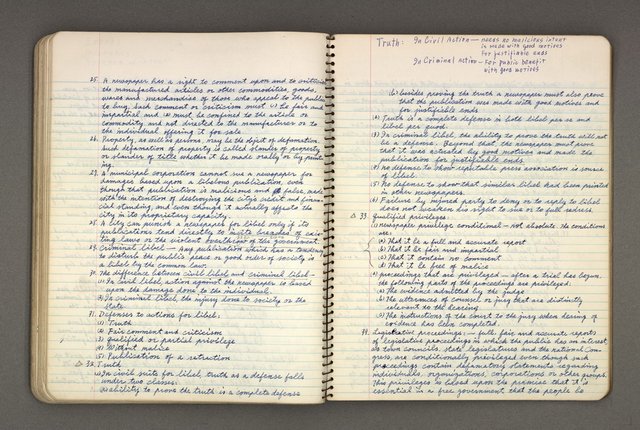 25. A newspaper has a right to comment upon and to criticize
the manufactured articles or other commodities, goods,
wares and merchandise of those who appeal to the public
to buy. Such comment or criticism must (1) be fair and
impartial and (2) must be confined to the article or
commodity and not directed to the manufacturer or to
the individual offering it for sale.
26. Property, as well as persons, may be the object of defamation.
Such defamation of property is called slander of property
or slander of title whether it be made orally or by print-
ing.
27. A municipal corporation cannot sue a newspaper for
damages based upon a libelous publication, even
though that publication is malicious and false, made
with the intention of destroying the city's credit and finan-
cial standing, and even though it actually affects the
city in its proprietary capacity.
28. A city can punish a newspaper for libel only if its
publications tend directly to incite breaches of exis-
ting laws or the violent overthrow of the government.
29. Criminal libel — any publication which has a tendency
to disturb the public peace or good order of society is
a libel by the common law.
30. The difference between civil libel and criminal libel —
(1) In civil libel, action against the newspaper is based
upon the damage done to the individual.
(2) In criminal libel, the injury done to society or the
state.
31. Defenses to actions for libel:
(1) Truth
(2) Fair comment and criticism
(3) Qualified or partial privilege
(4) Without malice
(5) Publication of a retraction
△ 32. Truth
(1) In civil suits for libel, truth as a defense falls
under two classes:
ability to prove the truth is a complete defense
Truth: In Civil Action — needs no malicious intent
is made with good motives
for justifiable ends
In Criminal action — For public benefit
with good motives
(b) besides proving the truth a newspaper must also prove
that the publication was made with good motives and
for justifiable ends
(2) Truth is a complete defense in both libel per se and
libel per quod.
(3) In criminal libel, the ability to prove the truth will not
be a defense. Beyond that the newspaper must prove
that it was actuated by good motives and made the
publication for justifiable ends.
(4) no defense to show reputable press association is source
of libel.
(5) No defense to show that similar libel had been printed
in other newspapers.
(6) Failure by injured party to deny or to reply to libel
does not weaken his right to sue or to full redress.
△ 33. Qualified privileges.
(1) newspaper privilege conditional — not absolute. The conditions
are:
(a) That it be a full and accurate report
(b) That it be fair and impartial
(c) That it contain no comment
(d) That it be free of malice
(2) proceedings that are privileged — after a trial has begun,
the following parts of the proceedings are privileged:
(a) The evidence admitted by the judge
(b) The utterances of counsel or jury that are distinctly
relevant to the hearing
(c) The instructions of the court to the jury when hearing of
evidence has been completed.
34. Legislative proceedings — full, fair and accurate reports
of legislative proceedings in which the public has an interest
as town councils, state legislatures and the national con-
gress, are conditionally privileged even though such
proceedings contain defamatory statements regarding
individuals, organizations, corporations or other groups.
This privilege is based upon the premise that it is
essential in a free government that the people be